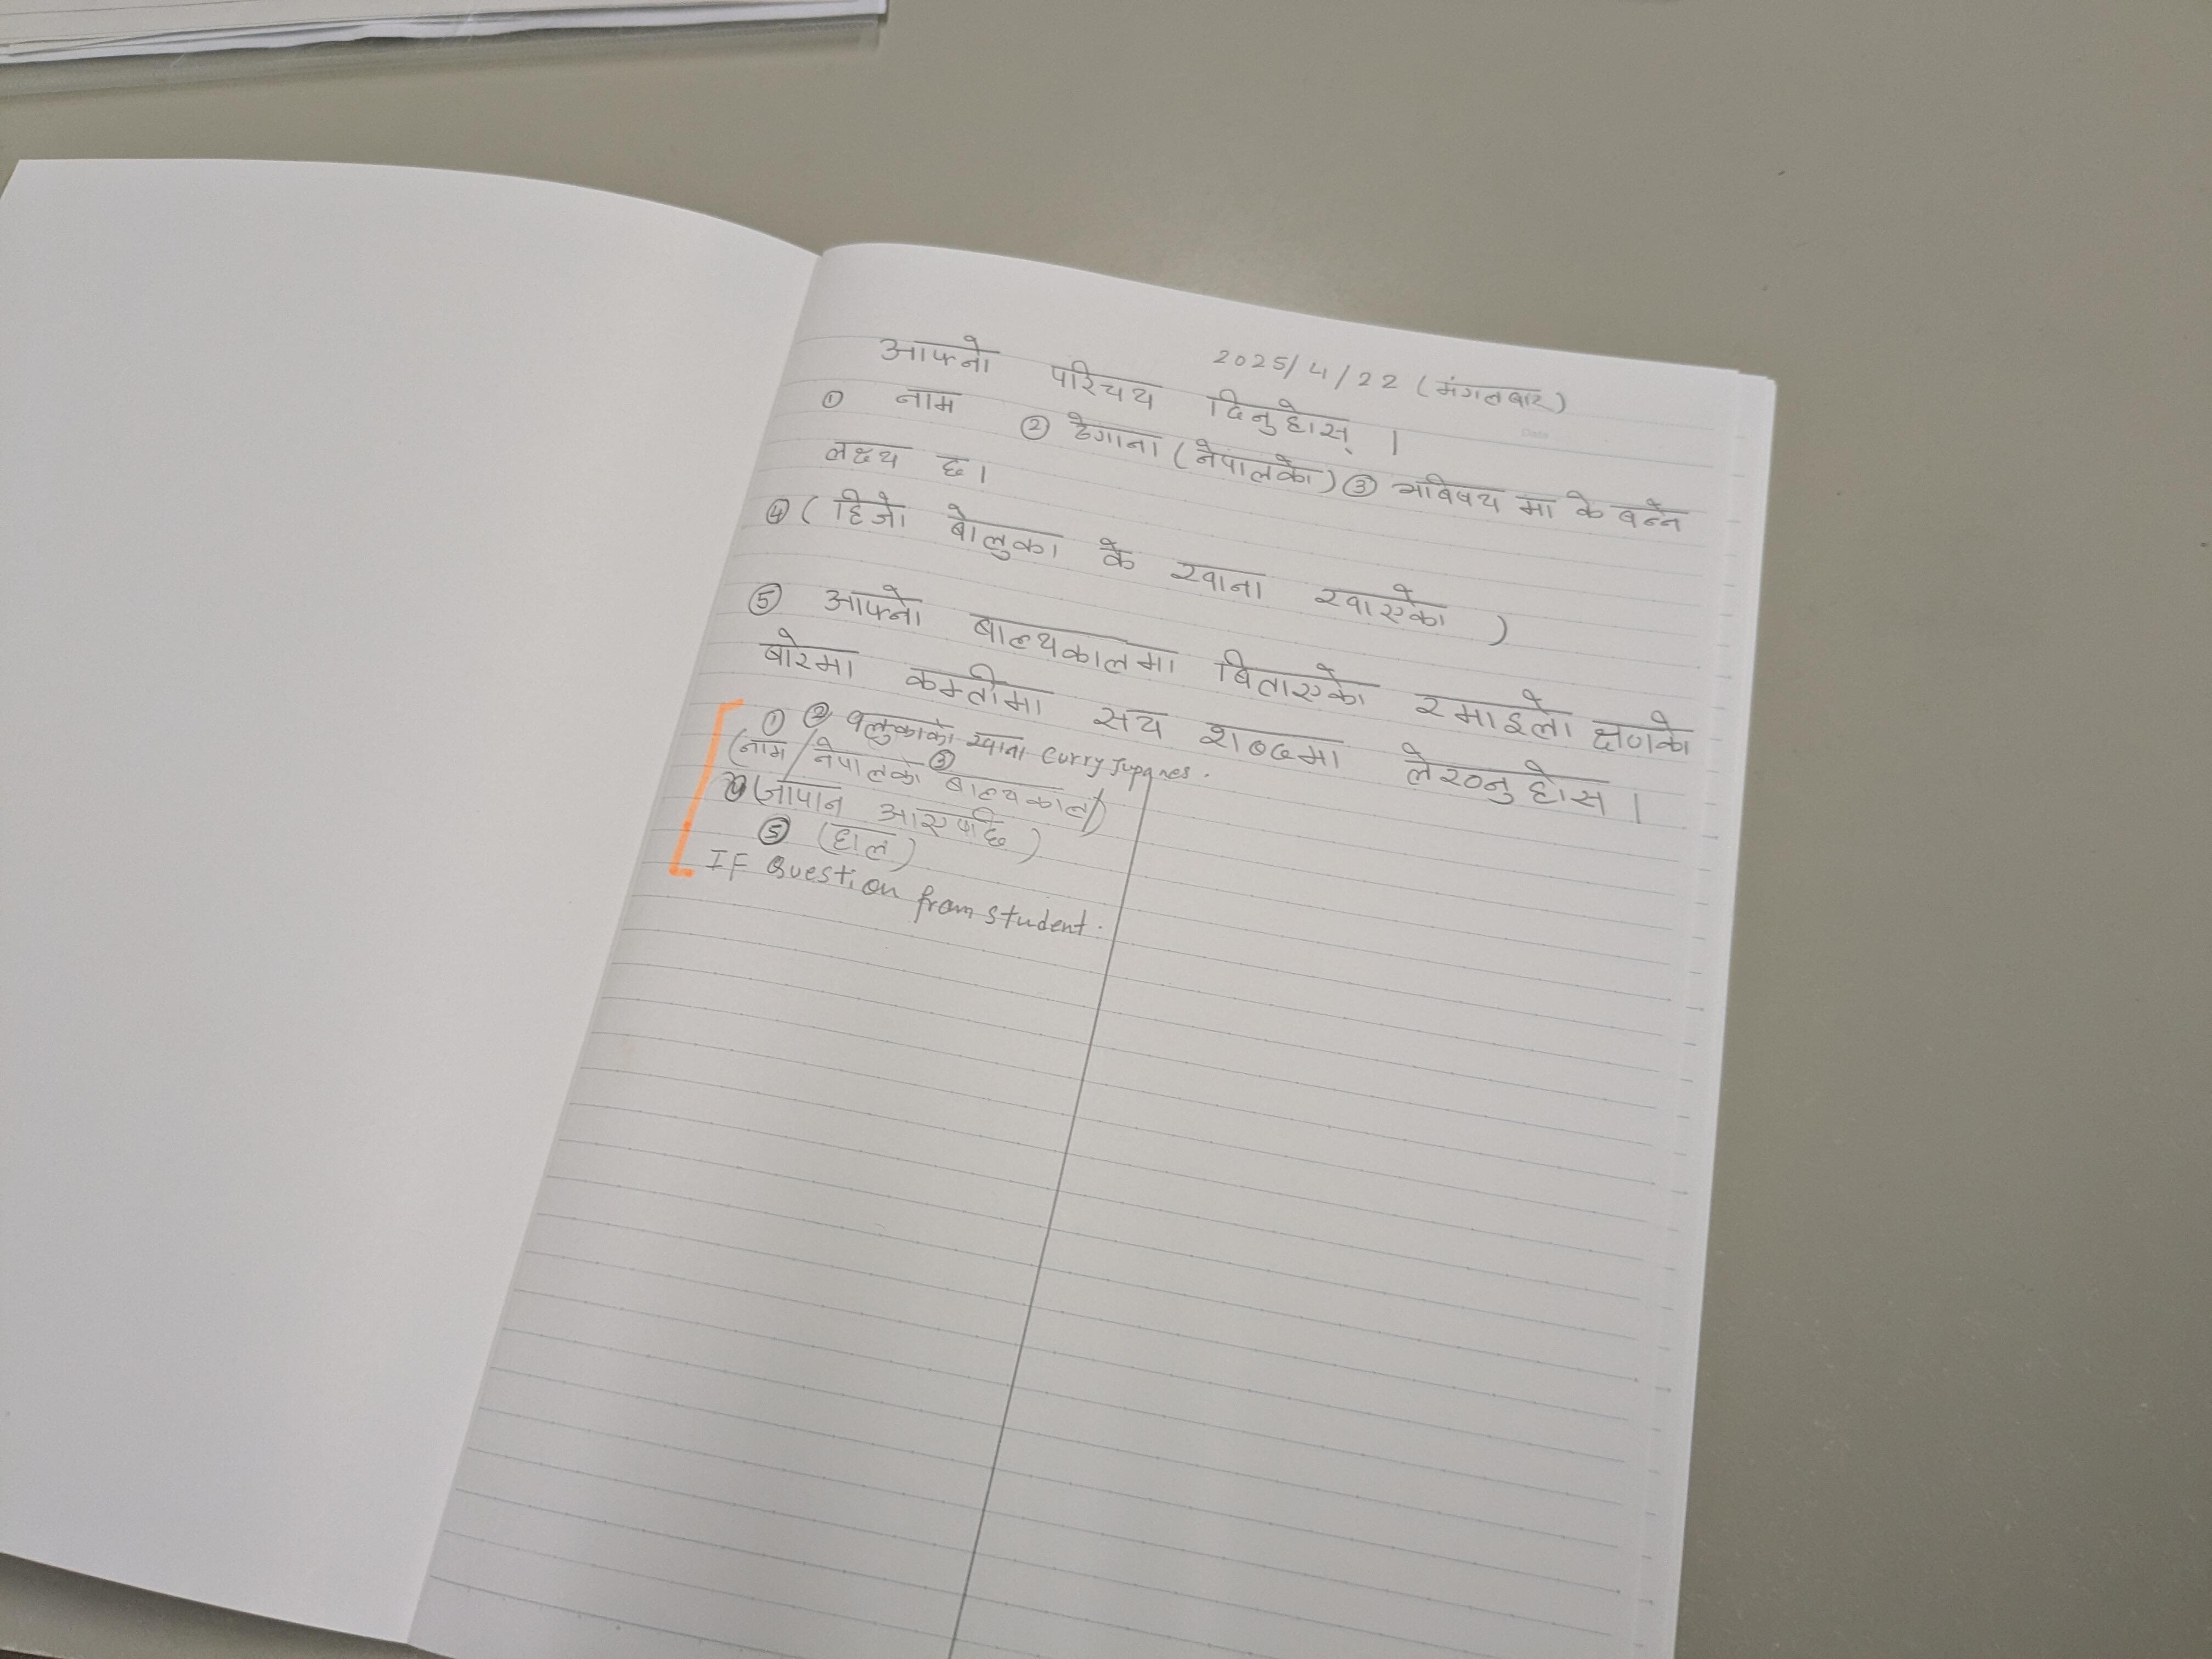 2025/4/22 (मंगलबार)
आफ्नो परिचय दिनुहोस् ।
① नाम ② ठेगाना (नेपालको) ③ भबिषय मा के बन्ने
लक्ष्य छ।
④ (हिजो बेलुका के खाना खाएको )
⑤ आफ्नो बाल्यकालमा बिताएको रमाइलो क्षणको
बारेमा कम्तीमा सय शब्दमा लेख्नुहोस ।
① ② वलुकाको खाना curry
(नाम/नेपालको ③ बाल्यकाल)
④ (जापान आएपछि )
⑤ (हाल)
IF Question from student.